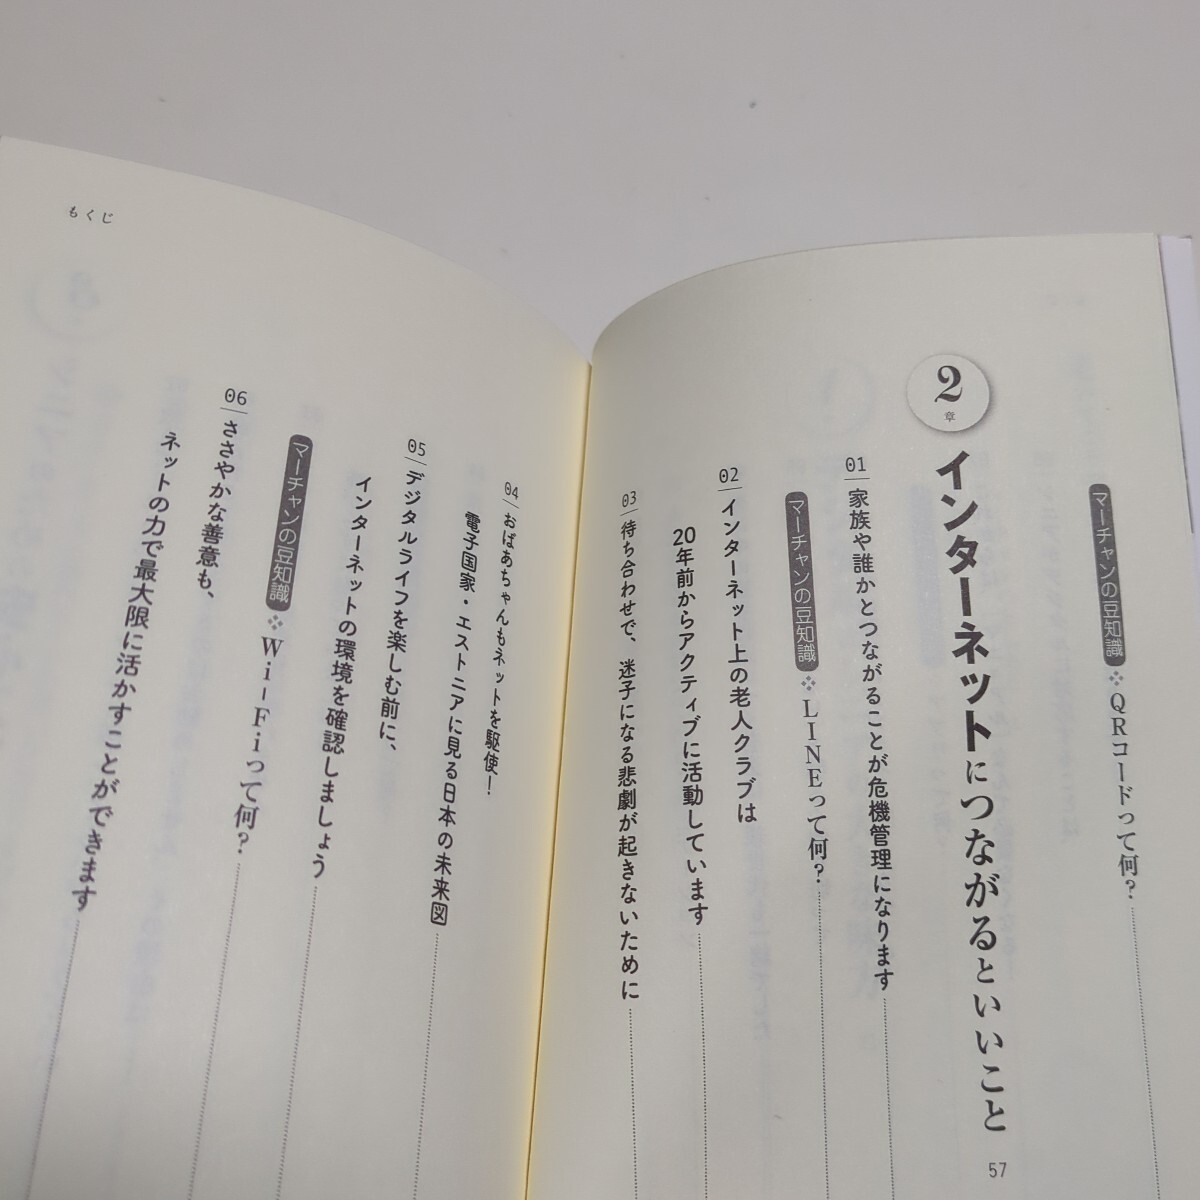 マーチャンの豆知識 ❖ QRコードって何?
2章 インターネットにつながるといいこと 57
01 家族や誰かとつながることが危機管理になります
マーチャンの豆知識 ❖ LINEって何?
02 インターネット上の老人クラブは
20年前からアクティブに活動しています
03 待ち合わせで、迷子になる悲劇が起きないために
04 おばあちゃんもネットを駆使!
電子国家・エストニアに見る日本の未来図
05 デジタルライフを楽しむ前に、
インターネットの環境を確認しましょう
マーチャンの豆知識 ❖ Wi-Fiって何?
06 ささやかな善意も、
ネットの力で最大限に活かすことができます
もくじ